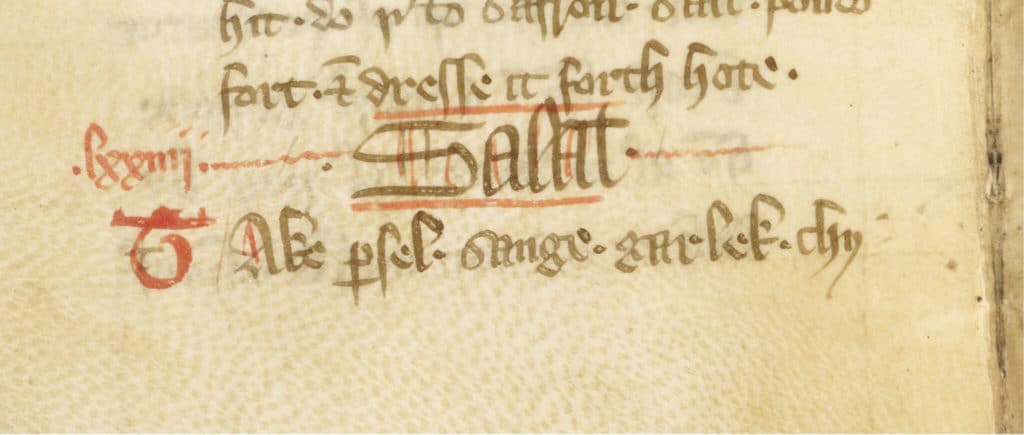 hit. do þ̲to safron. salt. poudo
fort. ⁊ dresse it forth hote.
.lxxiiij. . Salat .
Take ꝑsel. sauge. garlek. chy